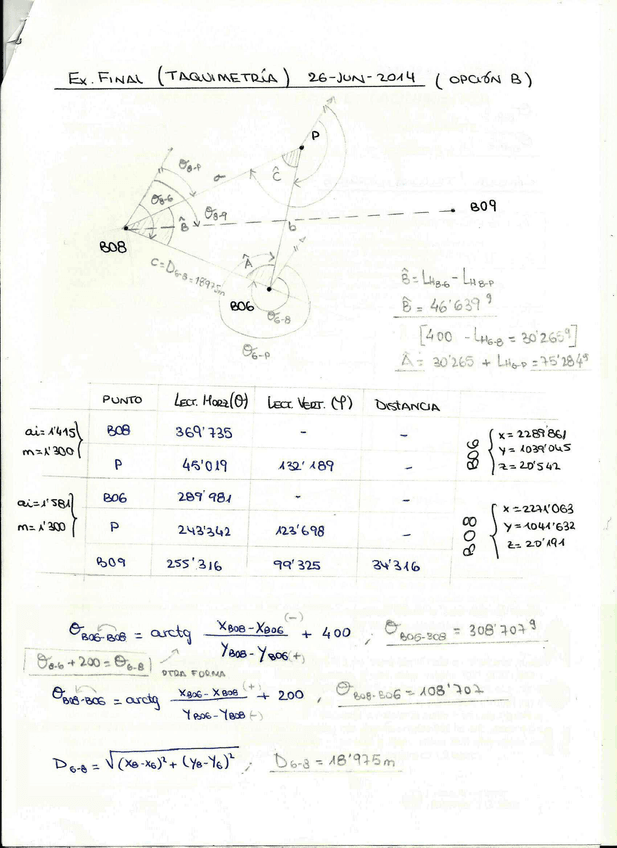 Ex. FINAL (TAQUIMETRÍA) 26-JUN-2014 (OPCIÓN B)
P
θ8-P
a
Ĉ
θ8-6
B̂
θ8-9
B09
B08
b
Â
C=D6-8=18975m
B06
θ6-8
θ6-P
B̂ = LH8-6 - LH8-P
B̂ = 46'639g
[400 - LH6-8 = 30'265g]
Â = 30'265 + LH6-P = 75'284g
PUNTO LECT. HORZ(θ) LECT. VERT. (φ) DISTANCIA
ai=1'415
m=1'300
B08 369'735 - -
P 45'019 132'189 -
B06
x = 2289'861
y = 1039'045
z = 20'542
ai=1'581
m=1'300
B06 289'981 - -
P 243'342 123'698 -
B09 255'316 99'325 34'316
B08
x = 2271'063
y = 1041'632
z = 20'191
θB06-B08 = arctg (XB08 - XB06 (-)) / (YB08 - YB06 (+)) + 400 , θB06-B08 = 308'707g
θ6-8 + 200 = θ8-6
OTRA FORMA
θB08-B06 = arctg (XB06 - XB08 (+)) / (YB06 - YB08 (-)) + 200 , θB08-B06 = 108'707
D6-8 = √(X8-X6)² + (Y8-Y6)² ; D6-8 = 18'975m